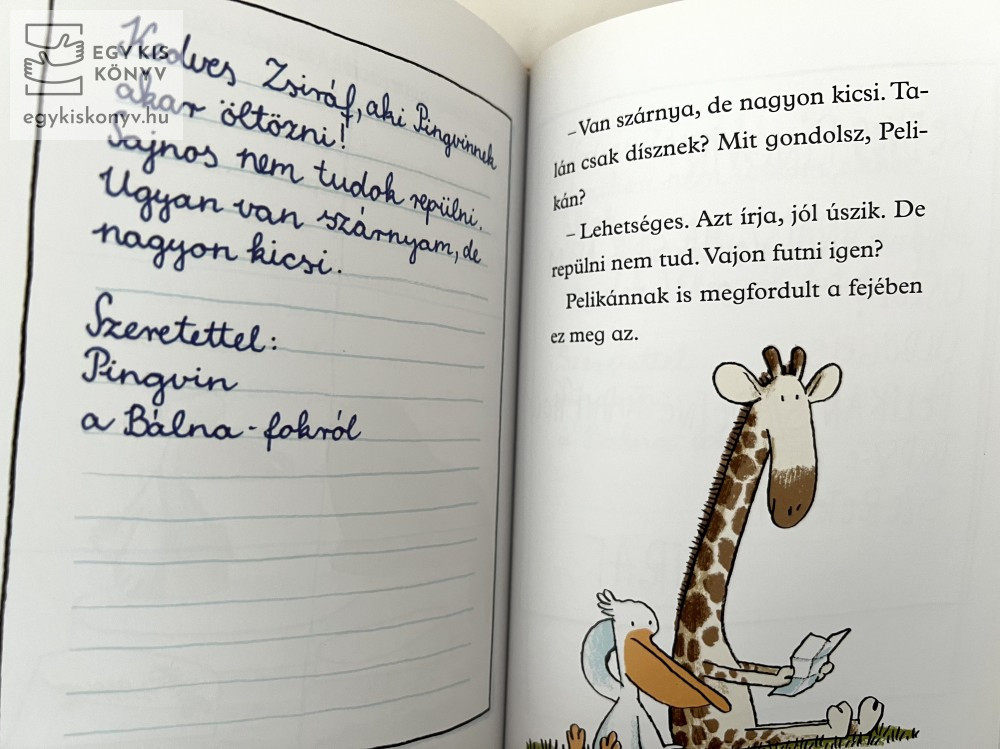 EGY KIS
KÖNYV
egykiskonyv.hu
Kedves Zsiráf, aki Pingvinnek
akar öltözni!
Sajnos nem tudok repülni.
Ugyan van szárnyam, de
nagyon kicsi.
Szeretettel:
Pingvin
a Bálna-fokról
– Van szárnya, de nagyon kicsi. Ta-
lán csak dísznek? Mit gondolsz, Peli-
kán?
– Lehetséges. Azt írja, jól úszik. De
repülni nem tud. Vajon futni igen?
Pelikánnak is megfordult a fejében
ez meg az.